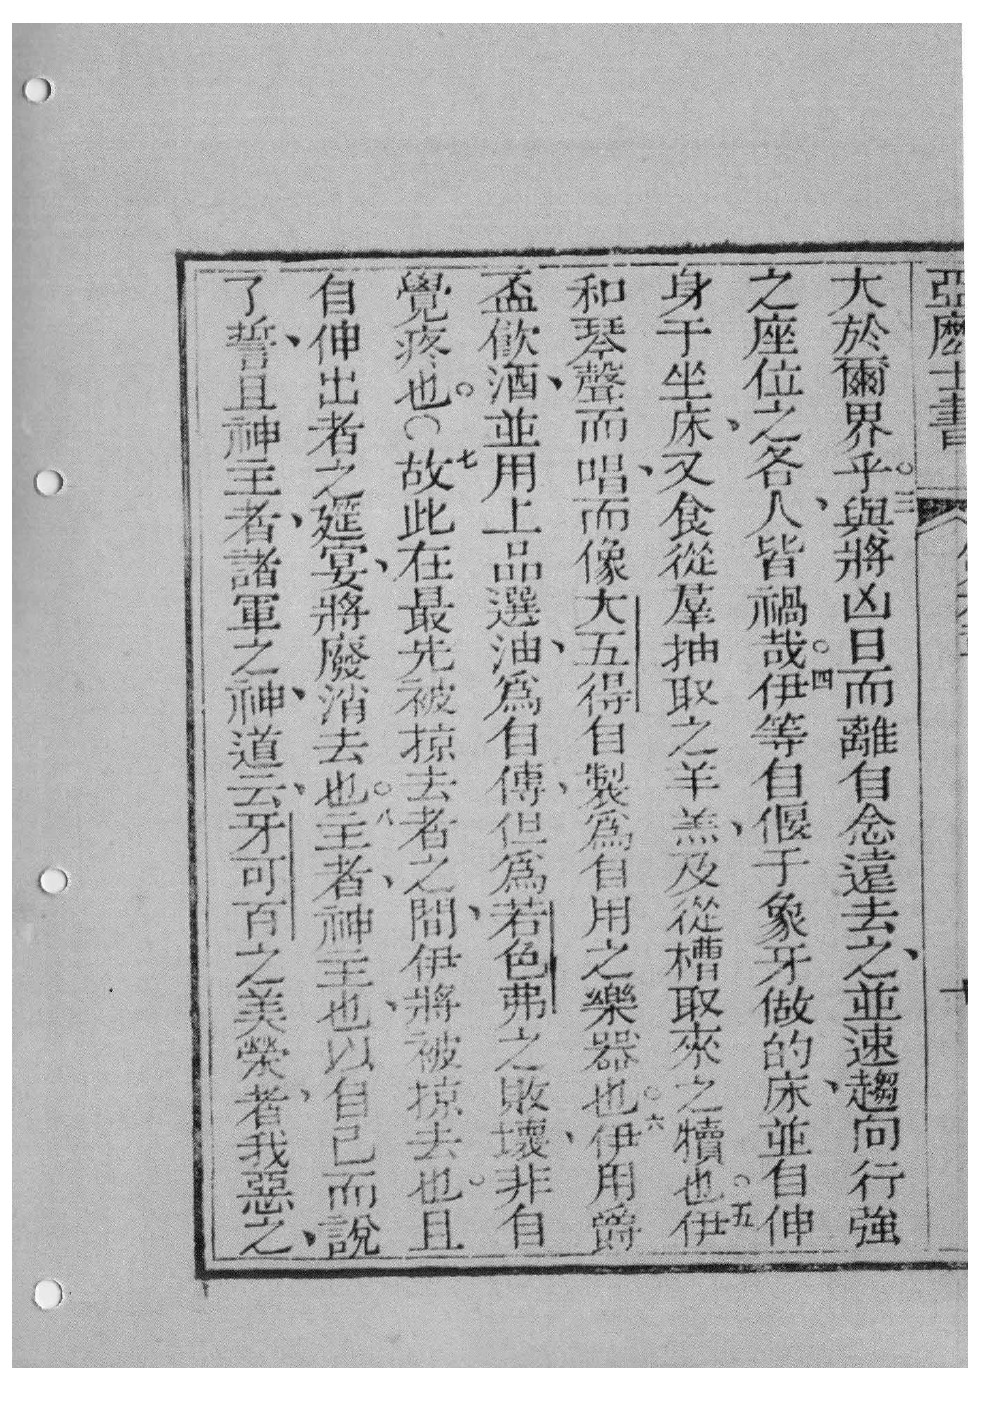 亞麽士書
大於爾界乎○三與將凶日而離自念遠去之、並速趨向行強
之座位之各人、皆禍哉○四伊等自偃于象牙做的床、並自伸
身于坐床、又食從羣抽取之羊羔、及從槽取來之犢也○五伊
和琴聲而唱、而像大五得自製爲自用之樂器也○六伊用爵
盃飲酒、並用上品選油、爲自傅、但爲若色弗之敗壞、非自
覺疼也○七故此在最先被掠去者之間、伊將被掠去也○且
自伸出者之筵宴、將廢消去也○八主者、神主也、以自己而說
了誓、且神主者、諸軍之神、道云、牙可百之美榮者、我惡之、